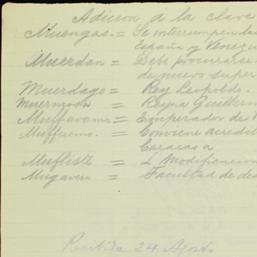 Adicion a la clave
Muengas = Se interrumpen
España y Venez
Muerdan = Debe procurarse
de nuevo super
Muerdago = Rey Leopoldo.
Muermoso = Reyna Guiller
Muffavam = Emperador de
Muffremo = Conviene acredi
Caracas a
Muflisti = 1 Modificacion
Mugavero = Facultad de de
Recibida 24 Agost